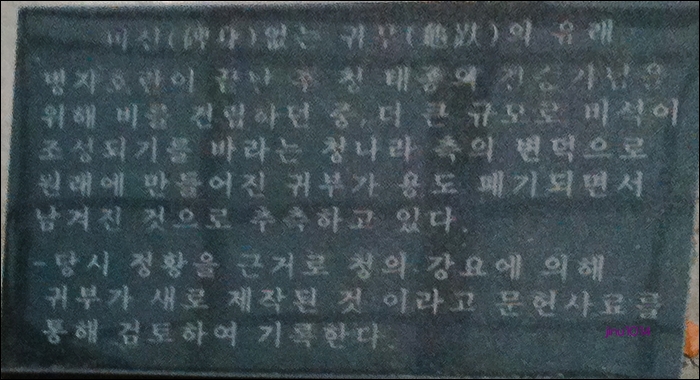 비신(碑身)없는 귀부(龜趺)의 유래
병자호란이 끝난 후 청 태종의 전승기념을
위해 비를 건립하던 중, 더 큰 규모로 비석이
조성되기를 바라는 청나라 측의 변덕으로
원래에 만들어진 귀부가 용도 폐기되면서
남겨진 것으로 추측하고 있다.
-당시 정황을 근거로 청의 강요에 의해
귀부가 새로 제작된 것 이라고 문헌사료를
통해 검토하여 기록한다.